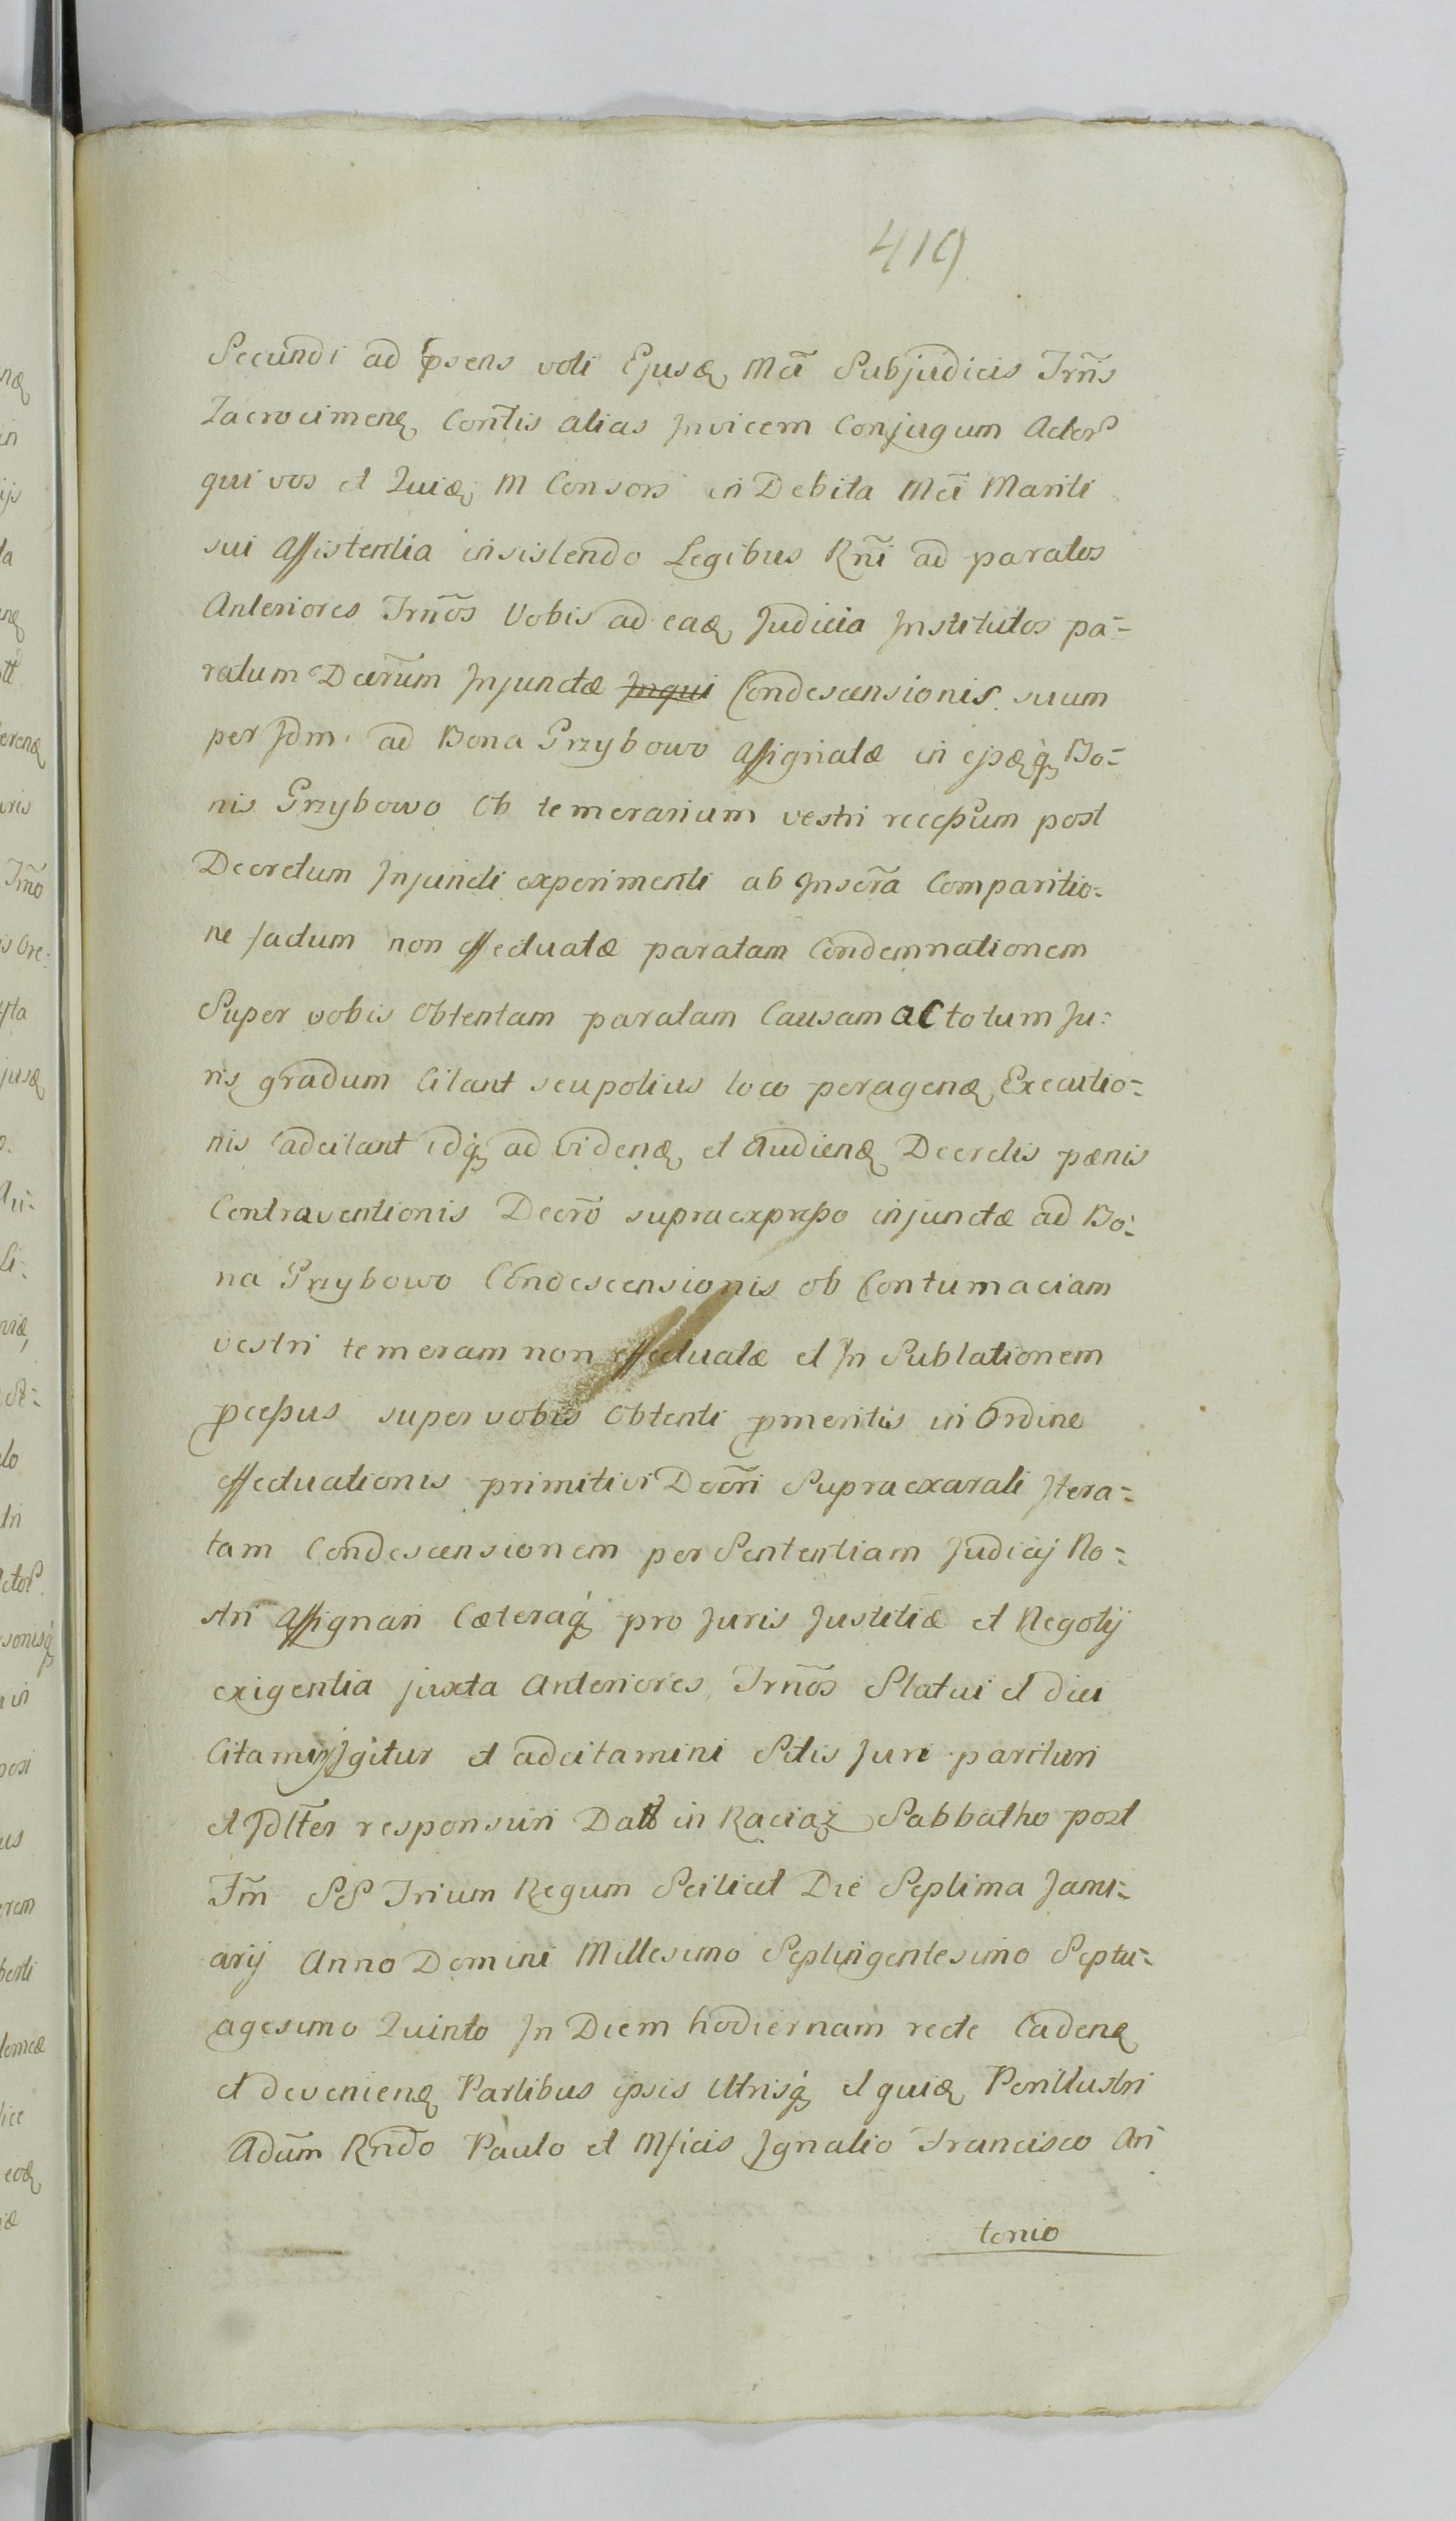 419
Secundi ad psens voti Ejusdē Mci Subjudicis Trns
Zacrocimenē Contis alias Invicem Conjugum Actor
qui vos et Quidē M Consors in Debita Mci Mariti
sui Assistentia insistendo Legibus Rni ad paratos
Anteriores Trnos Vobis ad eadē Judicia Institutos pa=
ratum Decrum Injunctæ Inqui Condescensionis suum
per Idm ad Bona Grzybowo Assignatæ in ejsdēq Bo=
nis Grzybowo Ob temerarium vestri recessum post
Decretum Injuncti experimenti ab Inscra Comparitio=
ne factum non effectuatæ paratam Condemnationem
Super vobis Obtentam paratam Causam ac totum Ju=
ris gradum Citant seu potius loco peragenē Executio=
nis adcitant idq ad videnē et Audienē Decretis pænis
Contraventionis Decro supraexpresso injunctæ ad Bo=
na Grzybowo Condescensionis ob Contumaciam
vestri temeram non effectuatæ et In Sublationem
pcessus super vobis Obtenti pmeritis in Ordine
effectuationis primitivi Decri Supraexarati Itera=
tam Condescensionem per Sententiam Judicij No=
stri Assignari Cæteraq pro Juris Justitiæ et Negotij
exigentia juxta Anteriores Trnos Statui et dici
Citamini Igitur et adcitamini Sitis Juri parituri
et Jdlter responsuri Datt in Raciąż Sabbatho post
Fm SS Trium Regum Scilicet Die Septima Janu=
arij Anno Domini Millesimo Septingentesimo Septu=
agesimo Quinto In Diem hodiernam recte Cadenē
et devenienē Partibus ipsis Utrisq et quidē Perillustri
Adum Rndo Paulo et Mficis Ignatio Francisco An
tonio